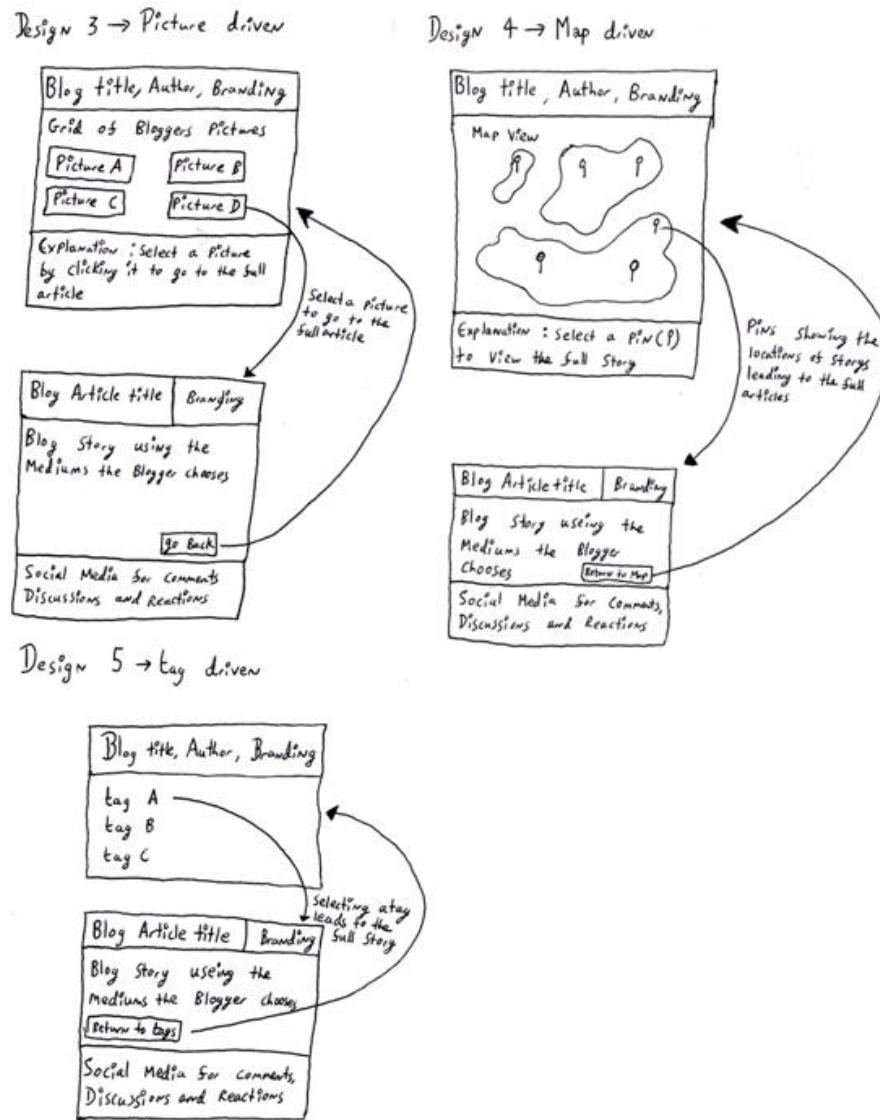 Design 3 → Picture driven
Blog title, Author, Branding
Grid of Bloggers Pictures
Picture A
Picture B
Picture C
Picture D
Explanation : Select a Picture
by clicking it to go to the full
article
Select a picture
to go to the
full article
Blog Article title
Branding
Blog Story using the
Mediums the Blogger chooses
go Back
Social Media for Comments
Discussions and Reactions
Design 4 → Map driven
Blog title, Author, Branding
Map View
Explanation : Select a Pin( )
to View the full Story
Pins showing the
locations of storys
leading to the full
articles
Blog Article title
Branding
Blog Story useing the
Mediums the Blogger
chooses
Return to Map
Social Media for Comments,
Discussions and Reactions
Design 5 → tag driven
Blog title, Author, Branding
tag A
tag B
tag C
Selecting a tag
leads to the
full Story
Blog Article title
Branding
Blog Story useing the
Mediums the Blogger chooses
Return to tags
Social Media for Comments,
Discussions and Reactions